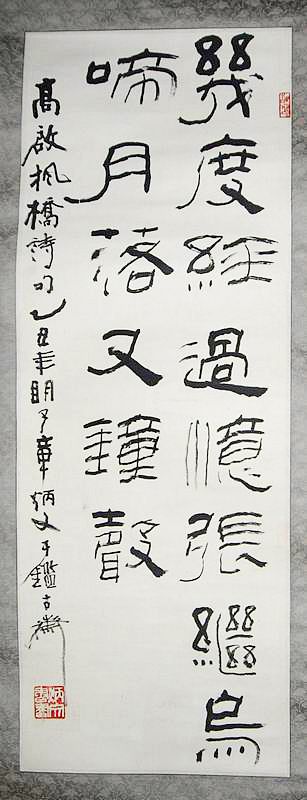 幾度經過憶張繼烏
啼月落又鐘聲
高啟楓橋詩句乙丑年明夕章炳文于鑑古齋